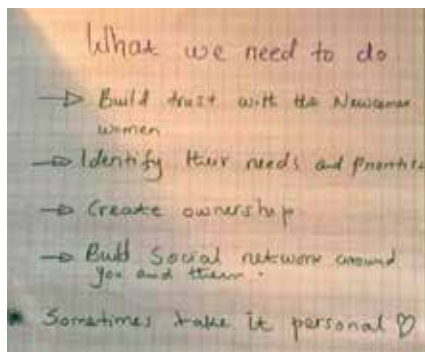 What we need to do
Build trust with the Newcomer
women
Identify their needs and Priorities
Create ownership
Build Social network around
you and them.
Sometimes take it personal ♡